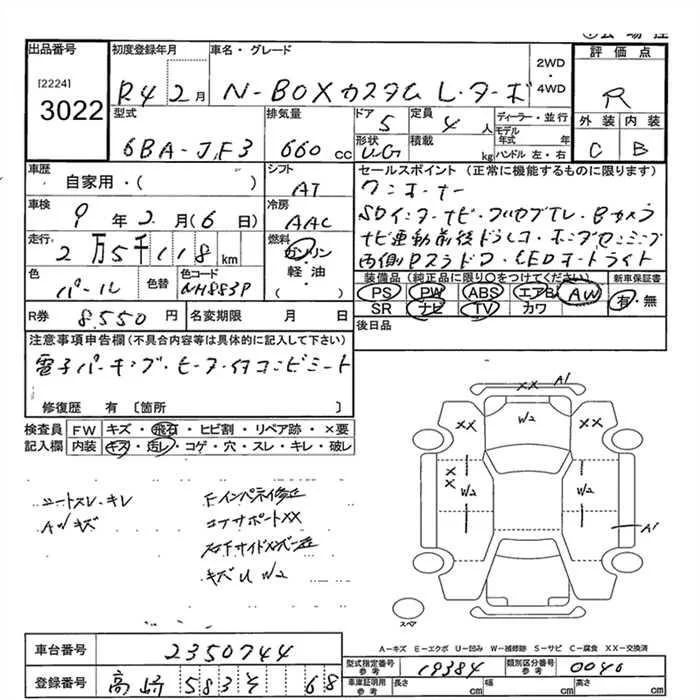 出品番号
[2224]
3022
初度登録年月
R4 2月
車名・グレード
N-BOXカスタム L・ターボ
2WD
・
4WD
評価点
R
外装 内装
C B
型式
6BA-JF3
排気量
660 cc
ドア
5
形状
UG
定員
4 人
積載
kg
ディーラー・並行
モデル年式 年
ハンドル 左・右
車歴
自家用・( )
シフト
AT
セールスポイント (正常に機能するものに限ります)
ワンオーナー
SDインターナビ・フルセグTV・Bカメラ
ナビ連動前後ドラレコ・ホンダセンシング
両側Pスラドア・LEDオートライト
車検
9年2月(6日)
冷房
AAC
走行
2万5千118km
燃料
ガソリン
軽油
( )
色
パール
色替
色コード
NH883P
装備品 (純正品に限り○をつけてください)
PS PW ABS エアB AW
SR ナビ TV カワ
新車保証書
有・無
R券
8,550円
名変期限 月 日
後日品
注意事項申告欄(不具合内容等は具体的に記入して下さい)
電子パーキング・ヒーター付コンビシート
修復歴 有 〔箇所 〕
検査員記入欄
FW キズ・飛石・ヒビ割・リペア跡・×要
内装 キズ・汚レ・コゲ・穴・スレ・キレ・破レ
シートスレ・キレ
AWキズ
Fインパネイ修正
コアサポートXX
右Fサイドメンバー
キズU W2
XX A1
W2
XX
XX
XX
XX
W2
W2
A1
スペア
A-キズ E-エクボ U-凹み W-補修跡 S-サビ C-腐食 XX-交換済
車台番号
2350744
登録番号
高崎 583 そ 68
型式指定番号
参考
19384
類別区分番号
参考
0040
車庫証明用
参考
長さ cm
幅 cm
高さ cm